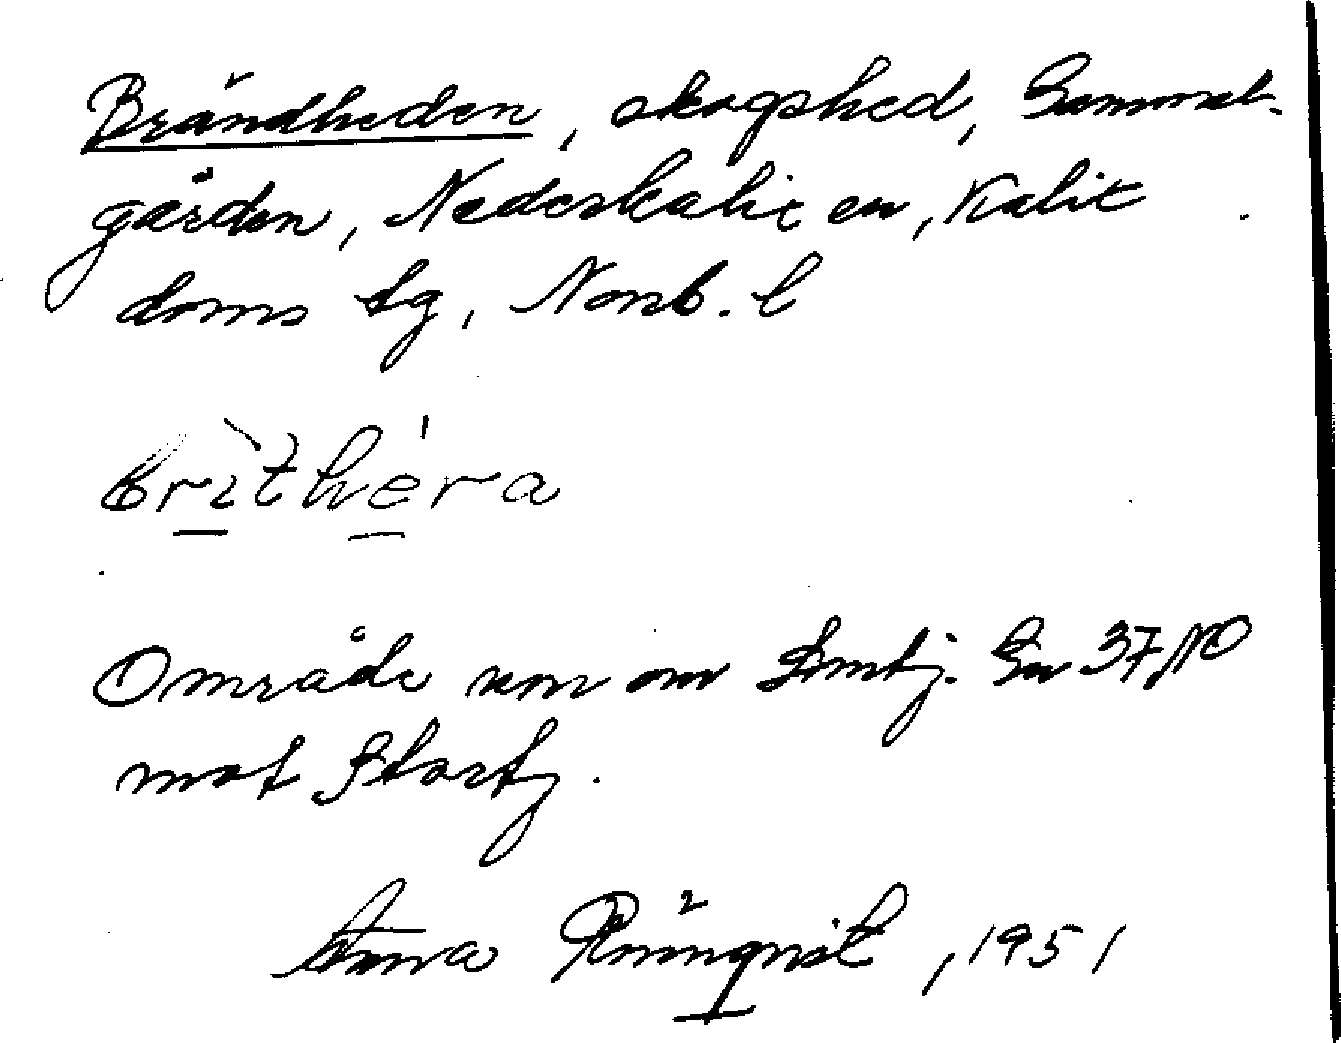 Brändheden, skogshed, Gammel-
gården, Nederkalix sn, Kalix
doms tg, Norrb. l
brìthéra
Område norr om Lomtj. Gu 37 NO
mot Stortj.
Anna Rönnqvist, 1951